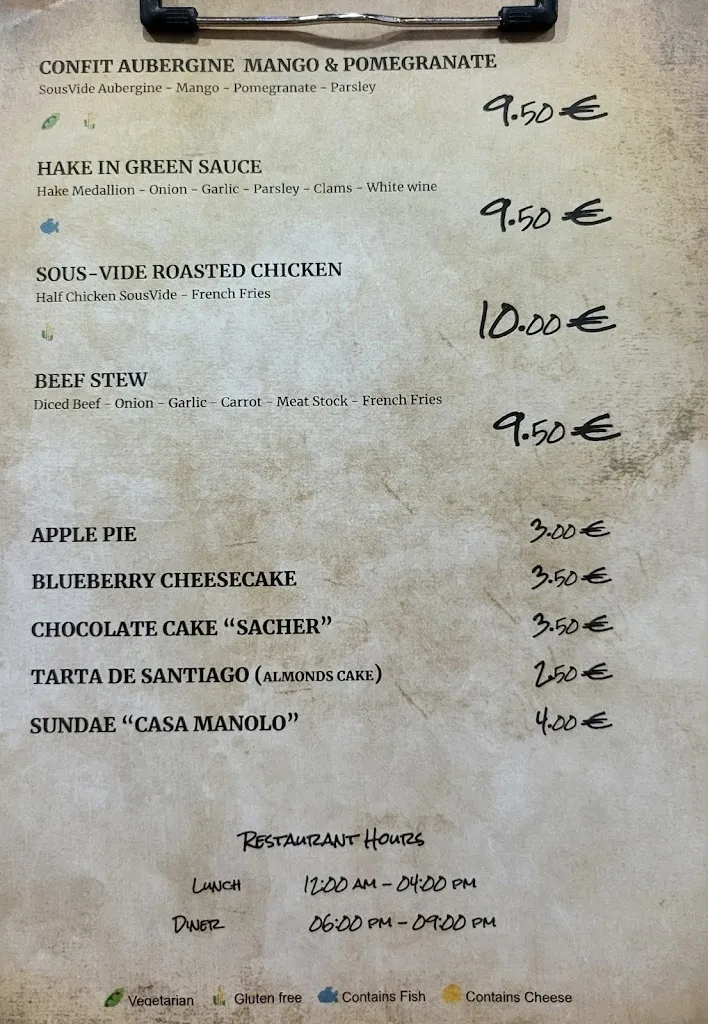 CONFIT AUBERGINE MANGO & POMEGRANATE
SousVide Aubergine - Mango - Pomegranate - Parsley
9.50 €
HAKE IN GREEN SAUCE
Hake Medallion - Onion - Garlic - Parsley - Clams - White wine
9.50 €
SOUS-VIDE ROASTED CHICKEN
Half Chicken SousVide - French Fries
10.00 €
BEEF STEW
Diced Beef - Onion - Garlic - Carrot - Meat Stock - French Fries
9.50 €
APPLE PIE 3.00 €
BLUEBERRY CHEESECAKE 3.50 €
CHOCOLATE CAKE “SACHER” 3.50 €
TARTA DE SANTIAGO (ALMONDS CAKE) 2.50 €
SUNDAE “CASA MANOLO” 4.00 €
RESTAURANT HOURS
LUNCH 12:00 AM - 04:00 PM
DINER 06:00 PM - 09:00 PM
Vegetarian Gluten free Contains Fish Contains Cheese